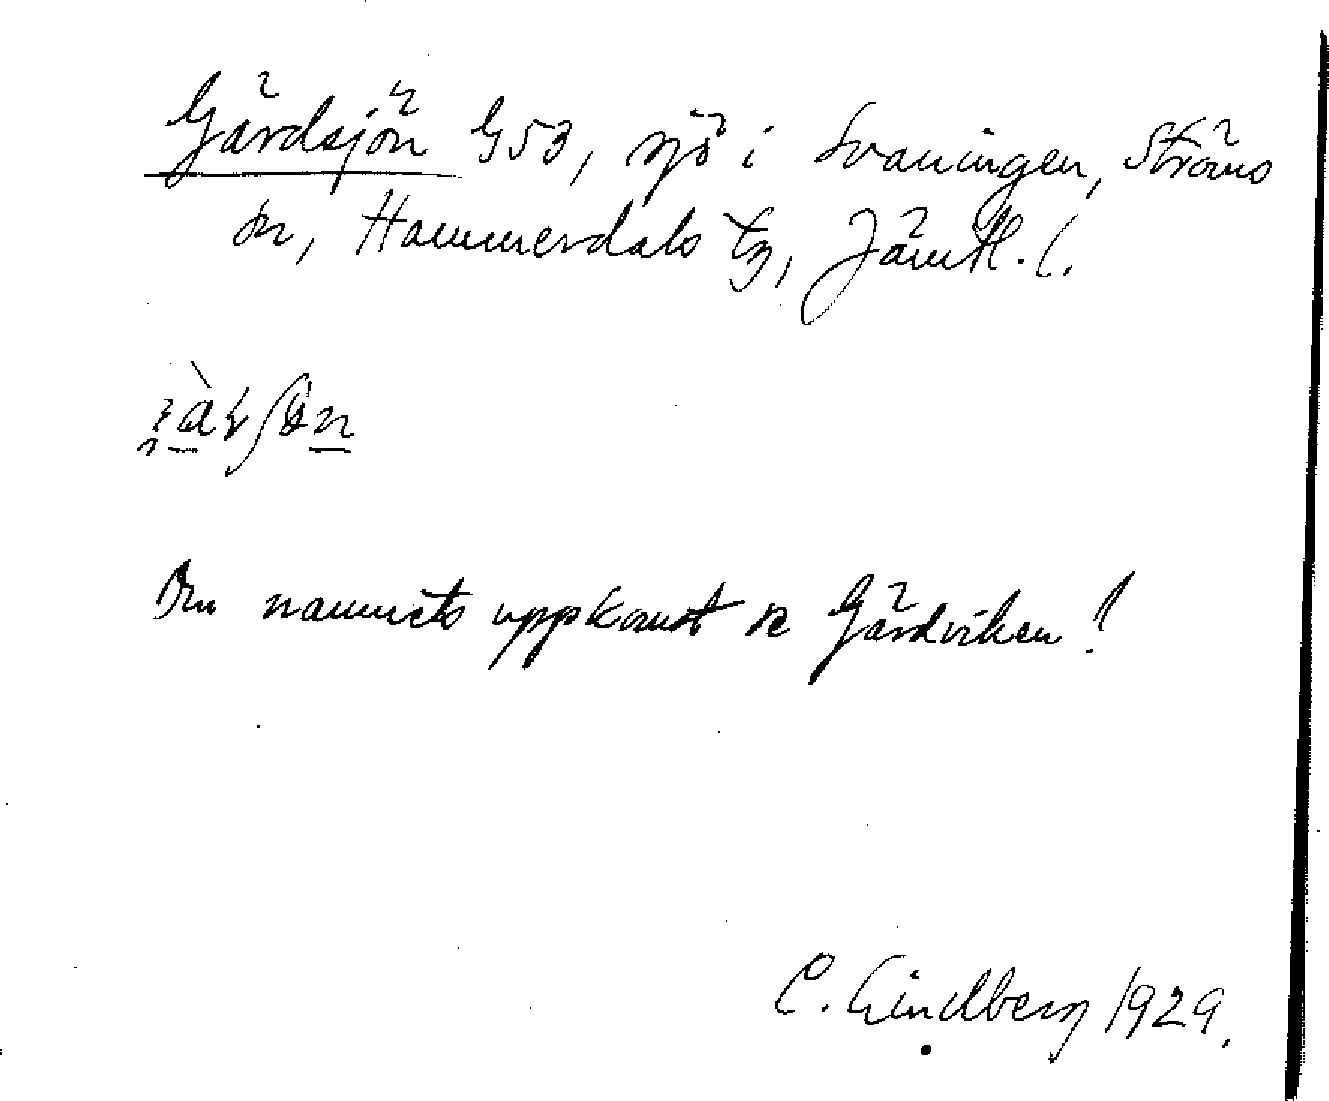 Gärdsjön G53, sjö i Svaningen, Ströms
sn, Hammerdals tg, Jämtl. l.
Om namnets uppkomst se Gärdviken!
C. Lindberg 1929.